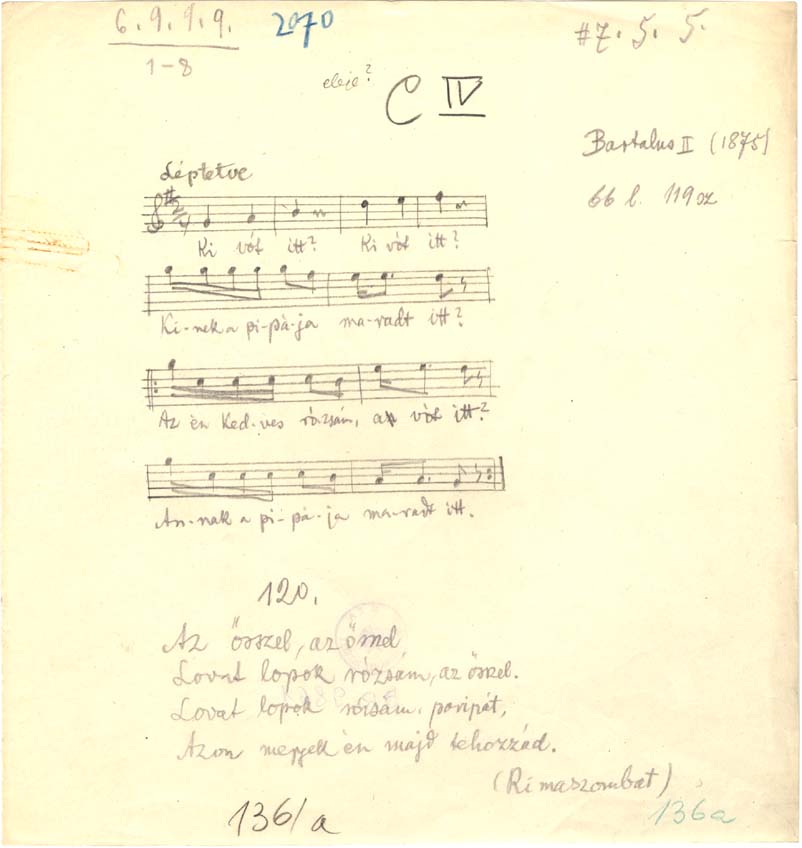 6. 9. 9. 9.
1-8
2070
#7. 5. 5.
eleje?
C IV
Bartalus II (1875)
66 l. 119 sz
Léptetve
Ki vót itt? Ki vót itt?
Ki-nek a pi-pá-ja ma-radt itt?
Az én ked-ves ró-zsám, a vót itt?
An-nak a pi-pá-ja ma-radt itt.
120.
Az ősszel, az ősszel
Lovat lopok rózsám, az ősszel.
Lovat lopok rózsám, paripát,
Azon megyek én majd tehozzád.
(Rimaszombat)
136/a
136a